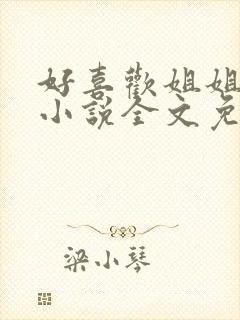 好喜歡姐姐
小說全文免
梁小琴